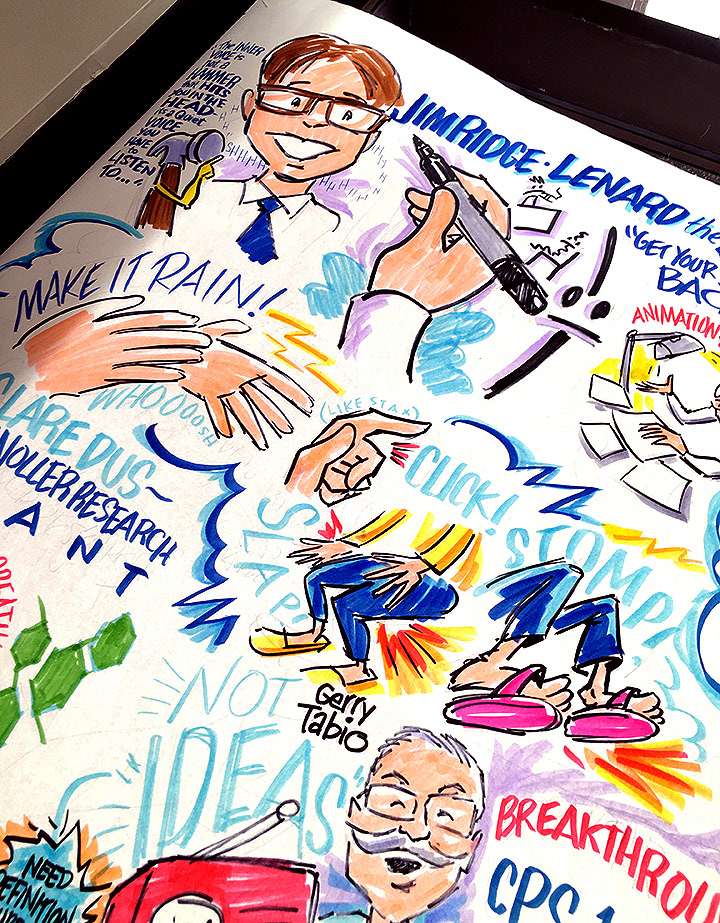 the INNER
VOICE is
not A
HAMMER
that HITS
YOU IN THE
HEAD
it's a Quiet
VOICE
YOU
HAVE to
LISTEN
TO....
SHHHHHHHHH
JIM RIDGE · LENARD the
"GET YOUR
BAC
ANIMATION
MAKE IT RAIN!
WHOOOOSH
(LIKE STAX)
CLICK!
SLAP!
STOMP!
CLARE DUS~
NOLLER RESEARCH
ANT
BREATH
NOT
"IDEAS"
Gerry
Tabio
BREAKTHROU
CPS
NEED
DEFINITION